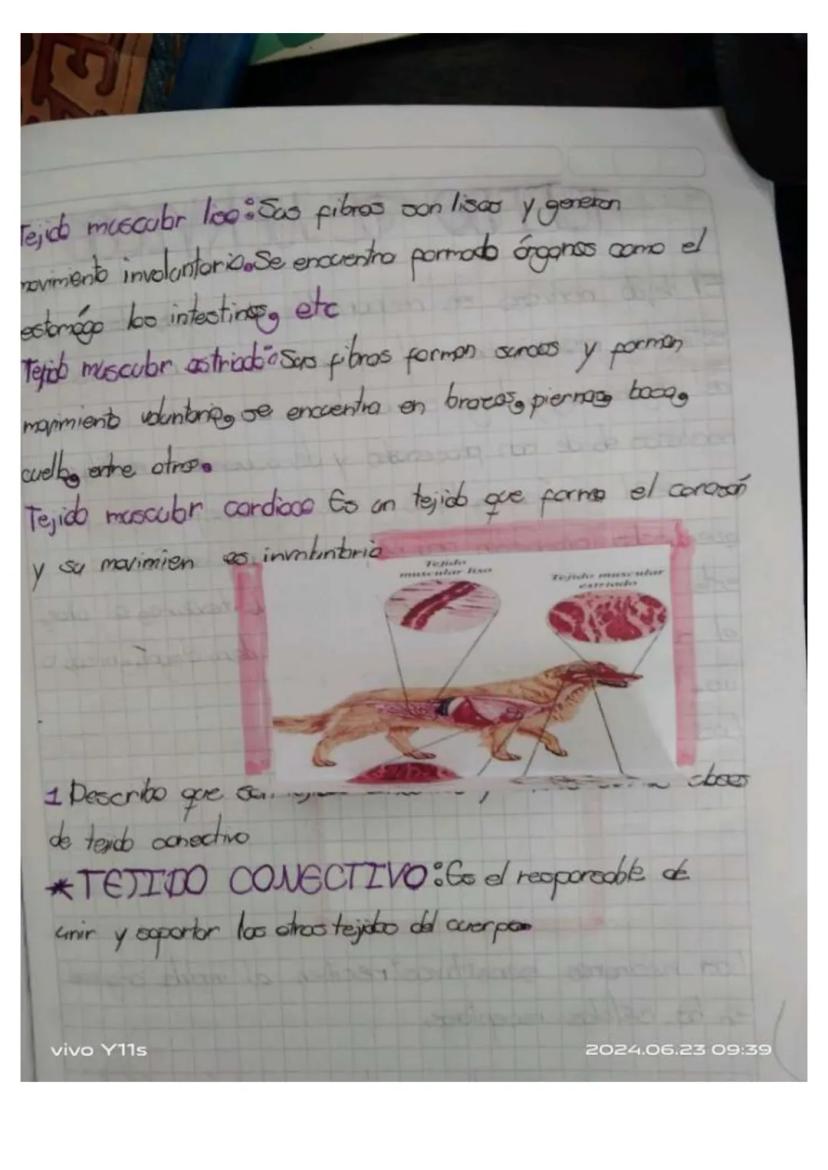 Tejido muscular liso: Sus fibras son lisas y generan
movimiento involuntario. Se encuentra formado órganos como el
estomágo los intestinos, etc
Tejido muscular estriado: Sus fibras forman surcos y forman
movimiento voluntario, se encuentra en brazos, piernas, boca,
cuello, entre otros.
Tejido muscular cardiaco Es un tejido que forma el corazón
y su movimien es involuntario
Tejido
muscular liso
Tejido muscular
estriado
1 Describo que
clases
de tejido conectivo
*TEJIDO CONECTIVO: Es el responsable de
unir y soportar los otros tejidos del cuerpo
vivo Y11s
2024.06.23 09:39